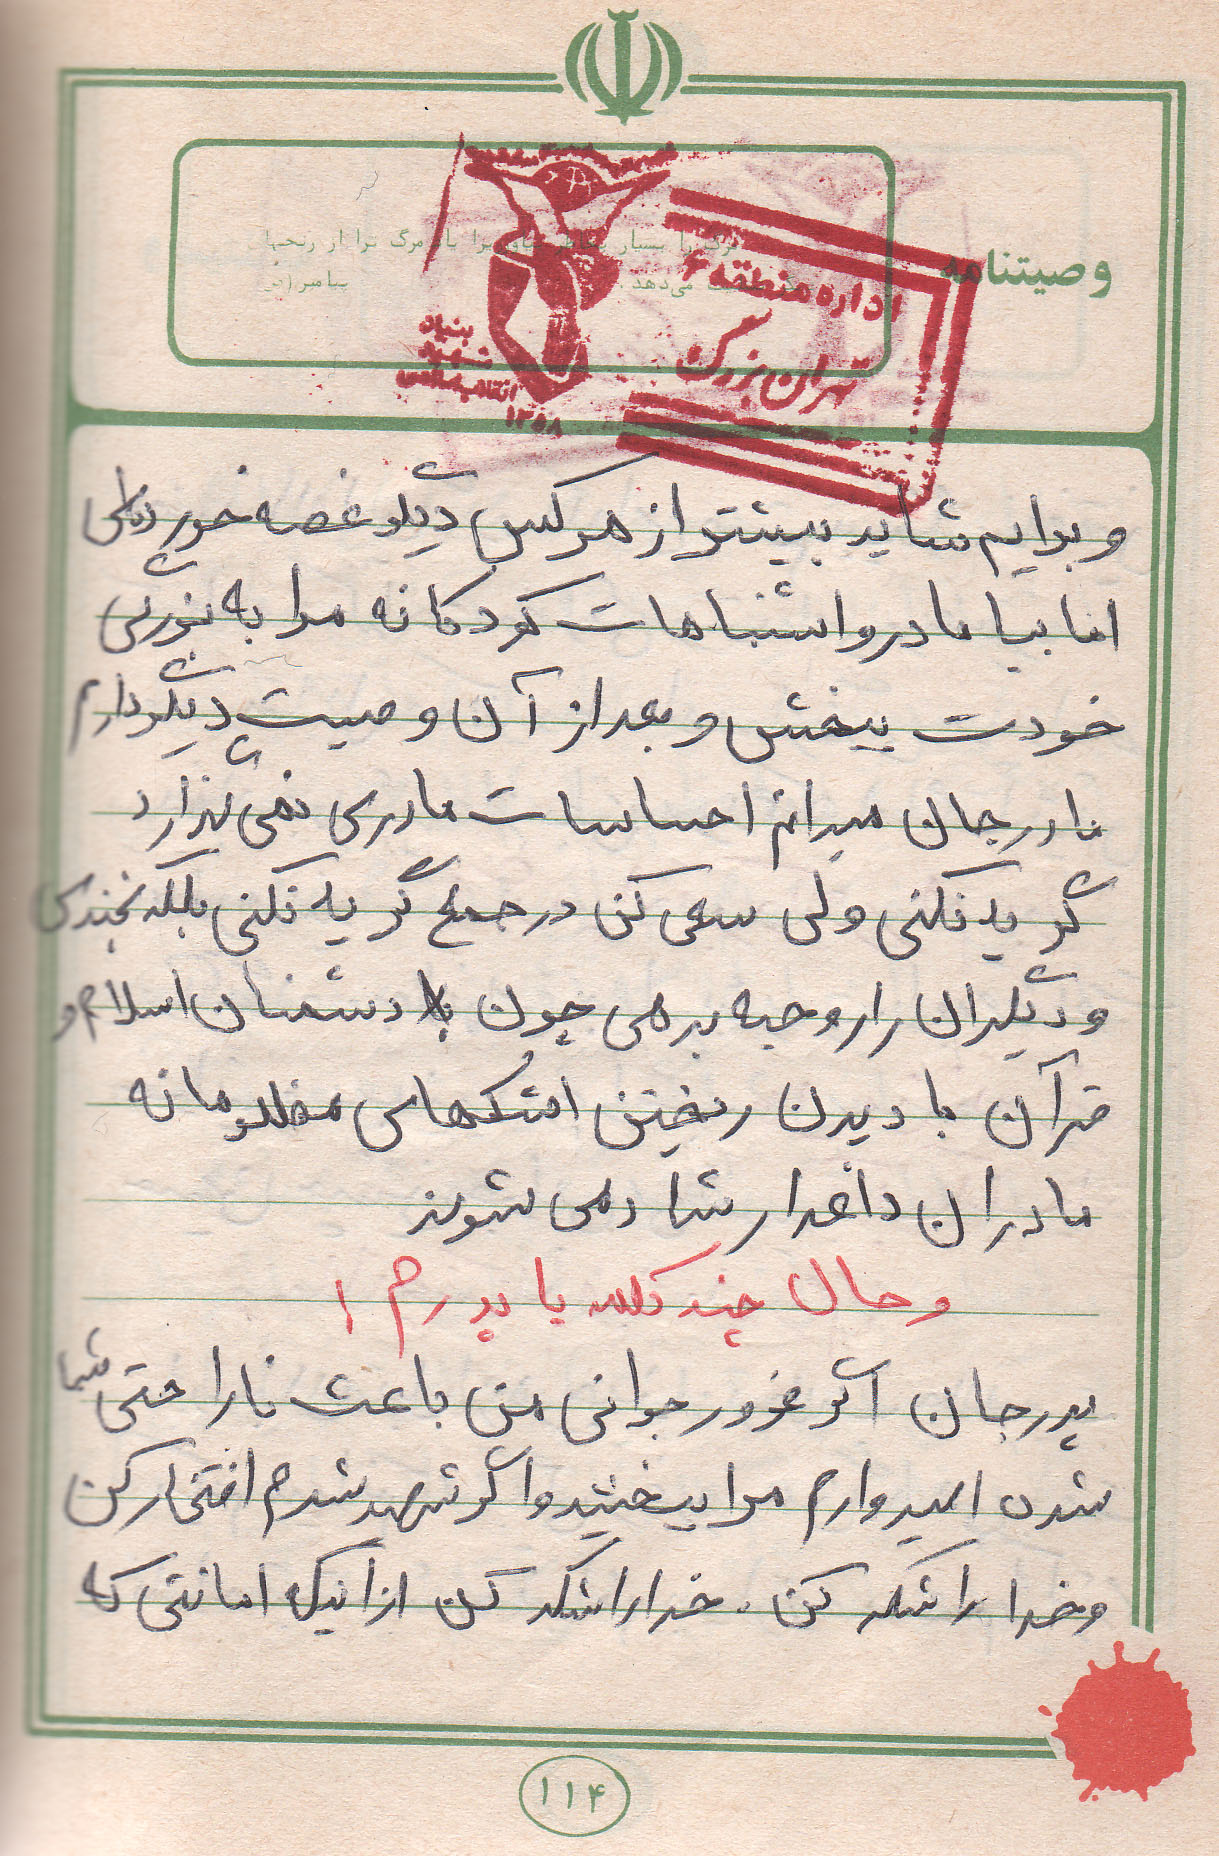 وصیتنامه
مرگ را بسیار بخاطر بیاورید یاد مرگ ترا از رنجها
می‌دهد. پیامبر (ص)
اداره منطقه ۶
تهران بزرگ
بنیاد
شهید
انقلاب اسلامی
۱۳۵۸
و برایم شاید بیشتر از هر کس دیگر غصه خورده‌ای
اما بیا مادر و اشتباهات کودکانه مرا به بزرگی
خودت ببخش و بعد از آن وصیت دیگر دارم
مادر جان میدانم احساسات مادری نمی گذارد
گریه نکنی ولی سعی کن در جمع گریه نکنی بلکه بخندی
و دیگران را روحیه بدهی چون دشمنان اسلام و
قرآن با دیدن ریختن اشکهای مظلومانه
مادران داغدار شاد می شوند
و حال چند کلمه با پدرم :
پدر جان اگر غرور جوانی من باعث ناراحتی شما
شده امیدوارم مرا ببخشید و اگر شهید شدم افتخار کن
و خدا را شکر کن . خدا را شکر کن از اینکه امانتی که
۱۱۴